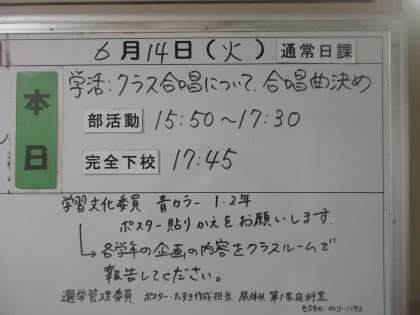 6月14日(火) 通常日課
本日
学活:クラス合唱について、合唱曲決め
部活動 15:50～17:30
完全下校 17:45
学習文化委員 青カラー 1・2年
ポスター貼りかえをお願いします。
→各学年の企画の内容をクラスルームで
報告してください。
選挙管理委員 ポスター・たすき作成担当 昼休み 第1家庭科室